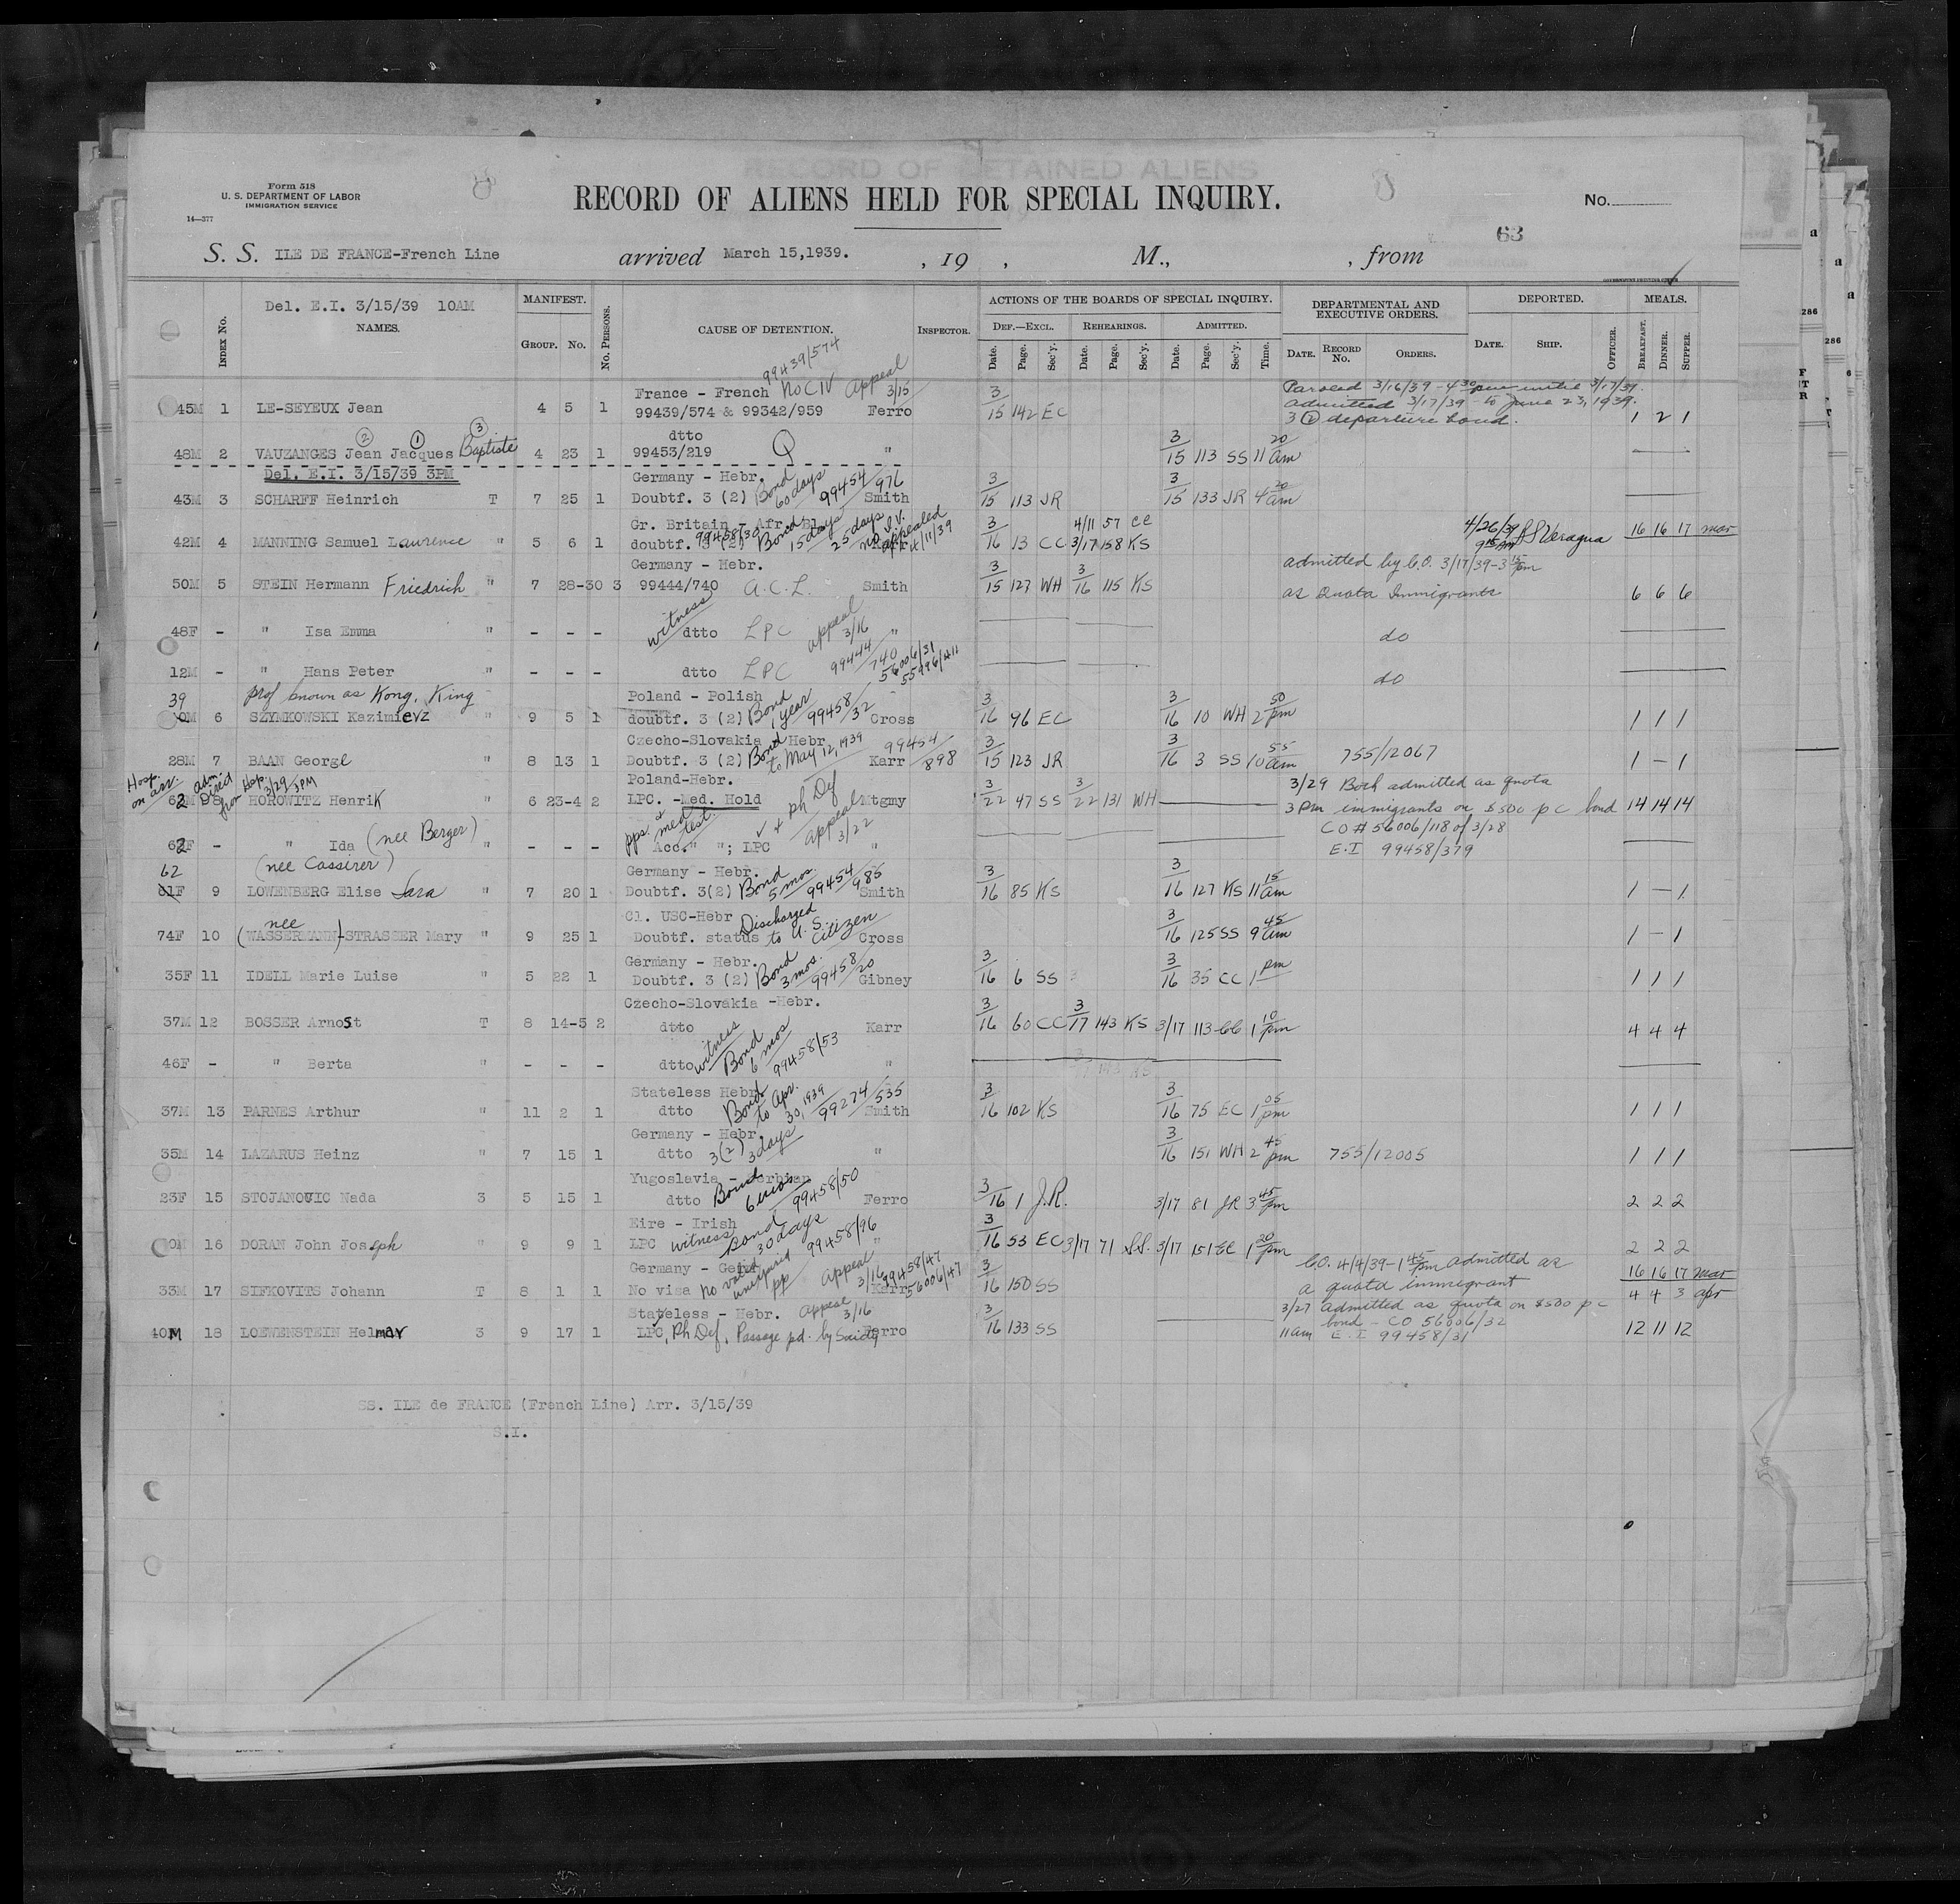 RECORD OF DETAINED ALIENS
Form 518
U. S. DEPARTMENT OF LABOR
IMMIGRATION SERVICE
14—377
RECORD OF ALIENS HELD FOR SPECIAL INQUIRY.
No.
63
S. S. ILE DE FRANCE-French Line arrived March 15,1939. , 19 , M., , from
Del. E.I. 3/15/39 10AM
INDEX No. NAMES. MANIFEST. GROUP. No. No. PERSONS. CAUSE OF DETENTION. INSPECTOR.
ACTIONS OF THE BOARDS OF SPECIAL INQUIRY. DEPARTMENTAL AND EXECUTIVE ORDERS. DEPORTED. MEALS.
DEF.—EXCL. REHEARINGS. ADMITTED.
Date. Page. Sec'y. Date. Page. Sec'y. Date. Page. Sec'y. Time. DATE. RECORD No. ORDERS. DATE. SHIP. OFFICER. BREAKFAST. DINNER. SUPPER.
99439/574
France - French No CIV Appeal 3/15 Paroled 3/16/39 - 4 30 pm until 3/17/39.
45M 1 LE-SEYEUX Jean 4 5 1 99439/574 & 99342/959 Ferro 3/15 142 EC admitted 3/17/39 - to June 23, 1939.
3 (2) departure bond. 1 2 1
② ① ③
dtto
48M 2 VAUZANGES Jean Jacques Baptiste 4 23 1 99453/219 Q " 3/15 113 SS 11 20 am
Del. E.I. 3/15/39 3PM
Germany - Hebr. Bond 60 days 99454/976
43M 3 SCHARFF Heinrich T 7 25 1 Doubtf. 3 (2) Smith 3/15 113 JR 3/15 133 JR 4 20 am
Gr. Britain - Afr. Bl. 99458/30 Bond 15 days 25 days no I.V. appealed 4/11/39
42M 4 MANNING Samuel Laurence " 5 6 1 doubtf. 3 (2) Karr 3/16 13 CC 4/11 57 CC 3/17 158 KS 4/26/39 9 15 AM SS Veragua 16 16 17 mar
Germany - Hebr. admitted by C.O. 3/17/39-3 15 pm
50M 5 STEIN Hermann Friedrich " 7 28-30 3 99444/740 A.C.L. Smith 3/15 127 WH 3/16 115 KS as Quota Immigrants 6 6 6
48F - " Isa Emma " - - - witness dtto LPC appeal 3/16 " do
12M - " Hans Peter " - - - dtto LPC 99444/740 56006/31 55996/411 do
39 prof known as Kong, King Poland - Polish Bond 1 year 99458/32
6 SZYMKOWSKI Kazimierz " 9 5 1 doubtf. 3 (2) Cross 3/16 96 EC 3/16 10 WH 2 50 pm 1 1 1
Czecho-Slovakia Hebr. Bond to May 12, 1939 99454/898
28M 7 BAAN George " 8 13 1 Doubtf. 3 (2) Karr 3/15 123 JR 3/16 3 SS 10 55 am 755/12067 1 - 1
Hosp. on arr. adm. Direct from Hosp. 3/29 3PM Poland-Hebr. 3/29 Both admitted as quota
62M 8 HOROWITZ Henrik " 6 23-4 2 LPC. -Med. Hold + ph Def Mtgmy 3/22 47 SS 3/22 131 WH 3 Pm immigrants on $500 p c bond 14 14 14
pps. & med test. appeal 3/22 CO # 56006/118 of 3/28
62F - " Ida (nee Berger) " - - - Acc." "; LPC " E.I 99458/379
62 (nee Cassirer) Germany - Hebr. Bond 5 mos 99454/985
61F 9 LOWENBERG Elise Sara " 7 20 1 Doubtf. 3(2) Smith 3/16 85 KS 3/16 127 KS 11 15 am 1 - 1
nee Cl. USC-Hebr Discharged to U. S. Citizen
74F 10 (WASSERMANN)-STRASSER Mary " 9 25 1 Doubtf. status Cross 3/16 125 SS 9 45 am 1 - 1
Germany - Hebr. Bond 3 mos. 99458/20
35F 11 IDELL Marie Luise 5 22 1 Doubtf. 3 (2) Gibney 3/16 6 SS 3/16 35 CC 1 pm 1 1 1
Czecho-Slovakia -Hebr.
37M 12 BOSSER Arnost T 8 14-5 2 dtto witness Karr 3/16 60 CC 3/17 143 KS 3/17 113 CC 1 10 pm 4 4 4
46F - " Berta " - - - dtto witness Bond 6 mos 99458/53 "
Stateless Hebr. Bond to Apr. 30, 1939 99274/535
37M 13 PARNES Arthur " 11 2 1 dtto Smith 3/16 102 KS 3/16 75 EC 1 05 pm 1 1 1
Germany - Hebr.
35M 14 LAZARUS Heinz " 7 15 1 dtto 3(2) 3 days " 3/16 151 WH 2 45 pm 755/12005 1 1 1
Yugoslavia - Serbian
23F 15 STOJANOVIC Nada 3 5 15 1 dtto Bond 6 mos 99458/50 Ferro 3/16 1 J.R. 3/17 81 JR 3 45 pm 2 2 2
Eire - Irish
16 DORAN John Joseph " 9 9 1 LPC witness Bond 30 days 99458/96 " 3/16 53 EC 3/17 71 S.S. 3/17 151 EC 1 20 pm 2 2 2
Germany - Germ. C.O. 4/4/39-1 45 pm admitted as 16 16 17 mar
33M 17 SIFKOVITS Johann T 8 1 1 No visa no valid unexpired pp Appeal 3/16 Karr 99458/47 56006/47 3/16 150 SS a quota immigrant 4 4 3 apr
Stateless - Hebr. appeal 3/16 3/27 admitted as quota on $500 p c
40M 18 LOEWENSTEIN Helmar 3 9 17 1 LPC, Ph Def. Passage pd. by Society Ferro 3/16 133 SS bond - CO 56006/32 12 11 12
11am E.I 99458/31
SS. ILE de FRANCE (French Line) Arr. 3/15/39
S.I.